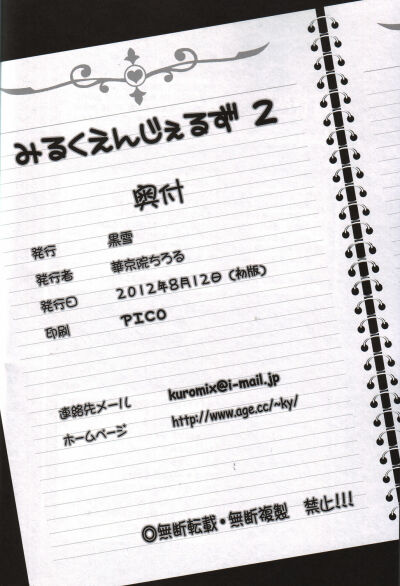 みるくえんじぇるず 2
奥付
発行 黒雪
発行者 華京院ちろる
発行日 2012年8月12日(初版)
印刷 PICO
連絡先メール kuromix@i-mail.jp
ホームページ http://www.age.cc/~ky/
◎無断転載・無断複製 禁止!!!